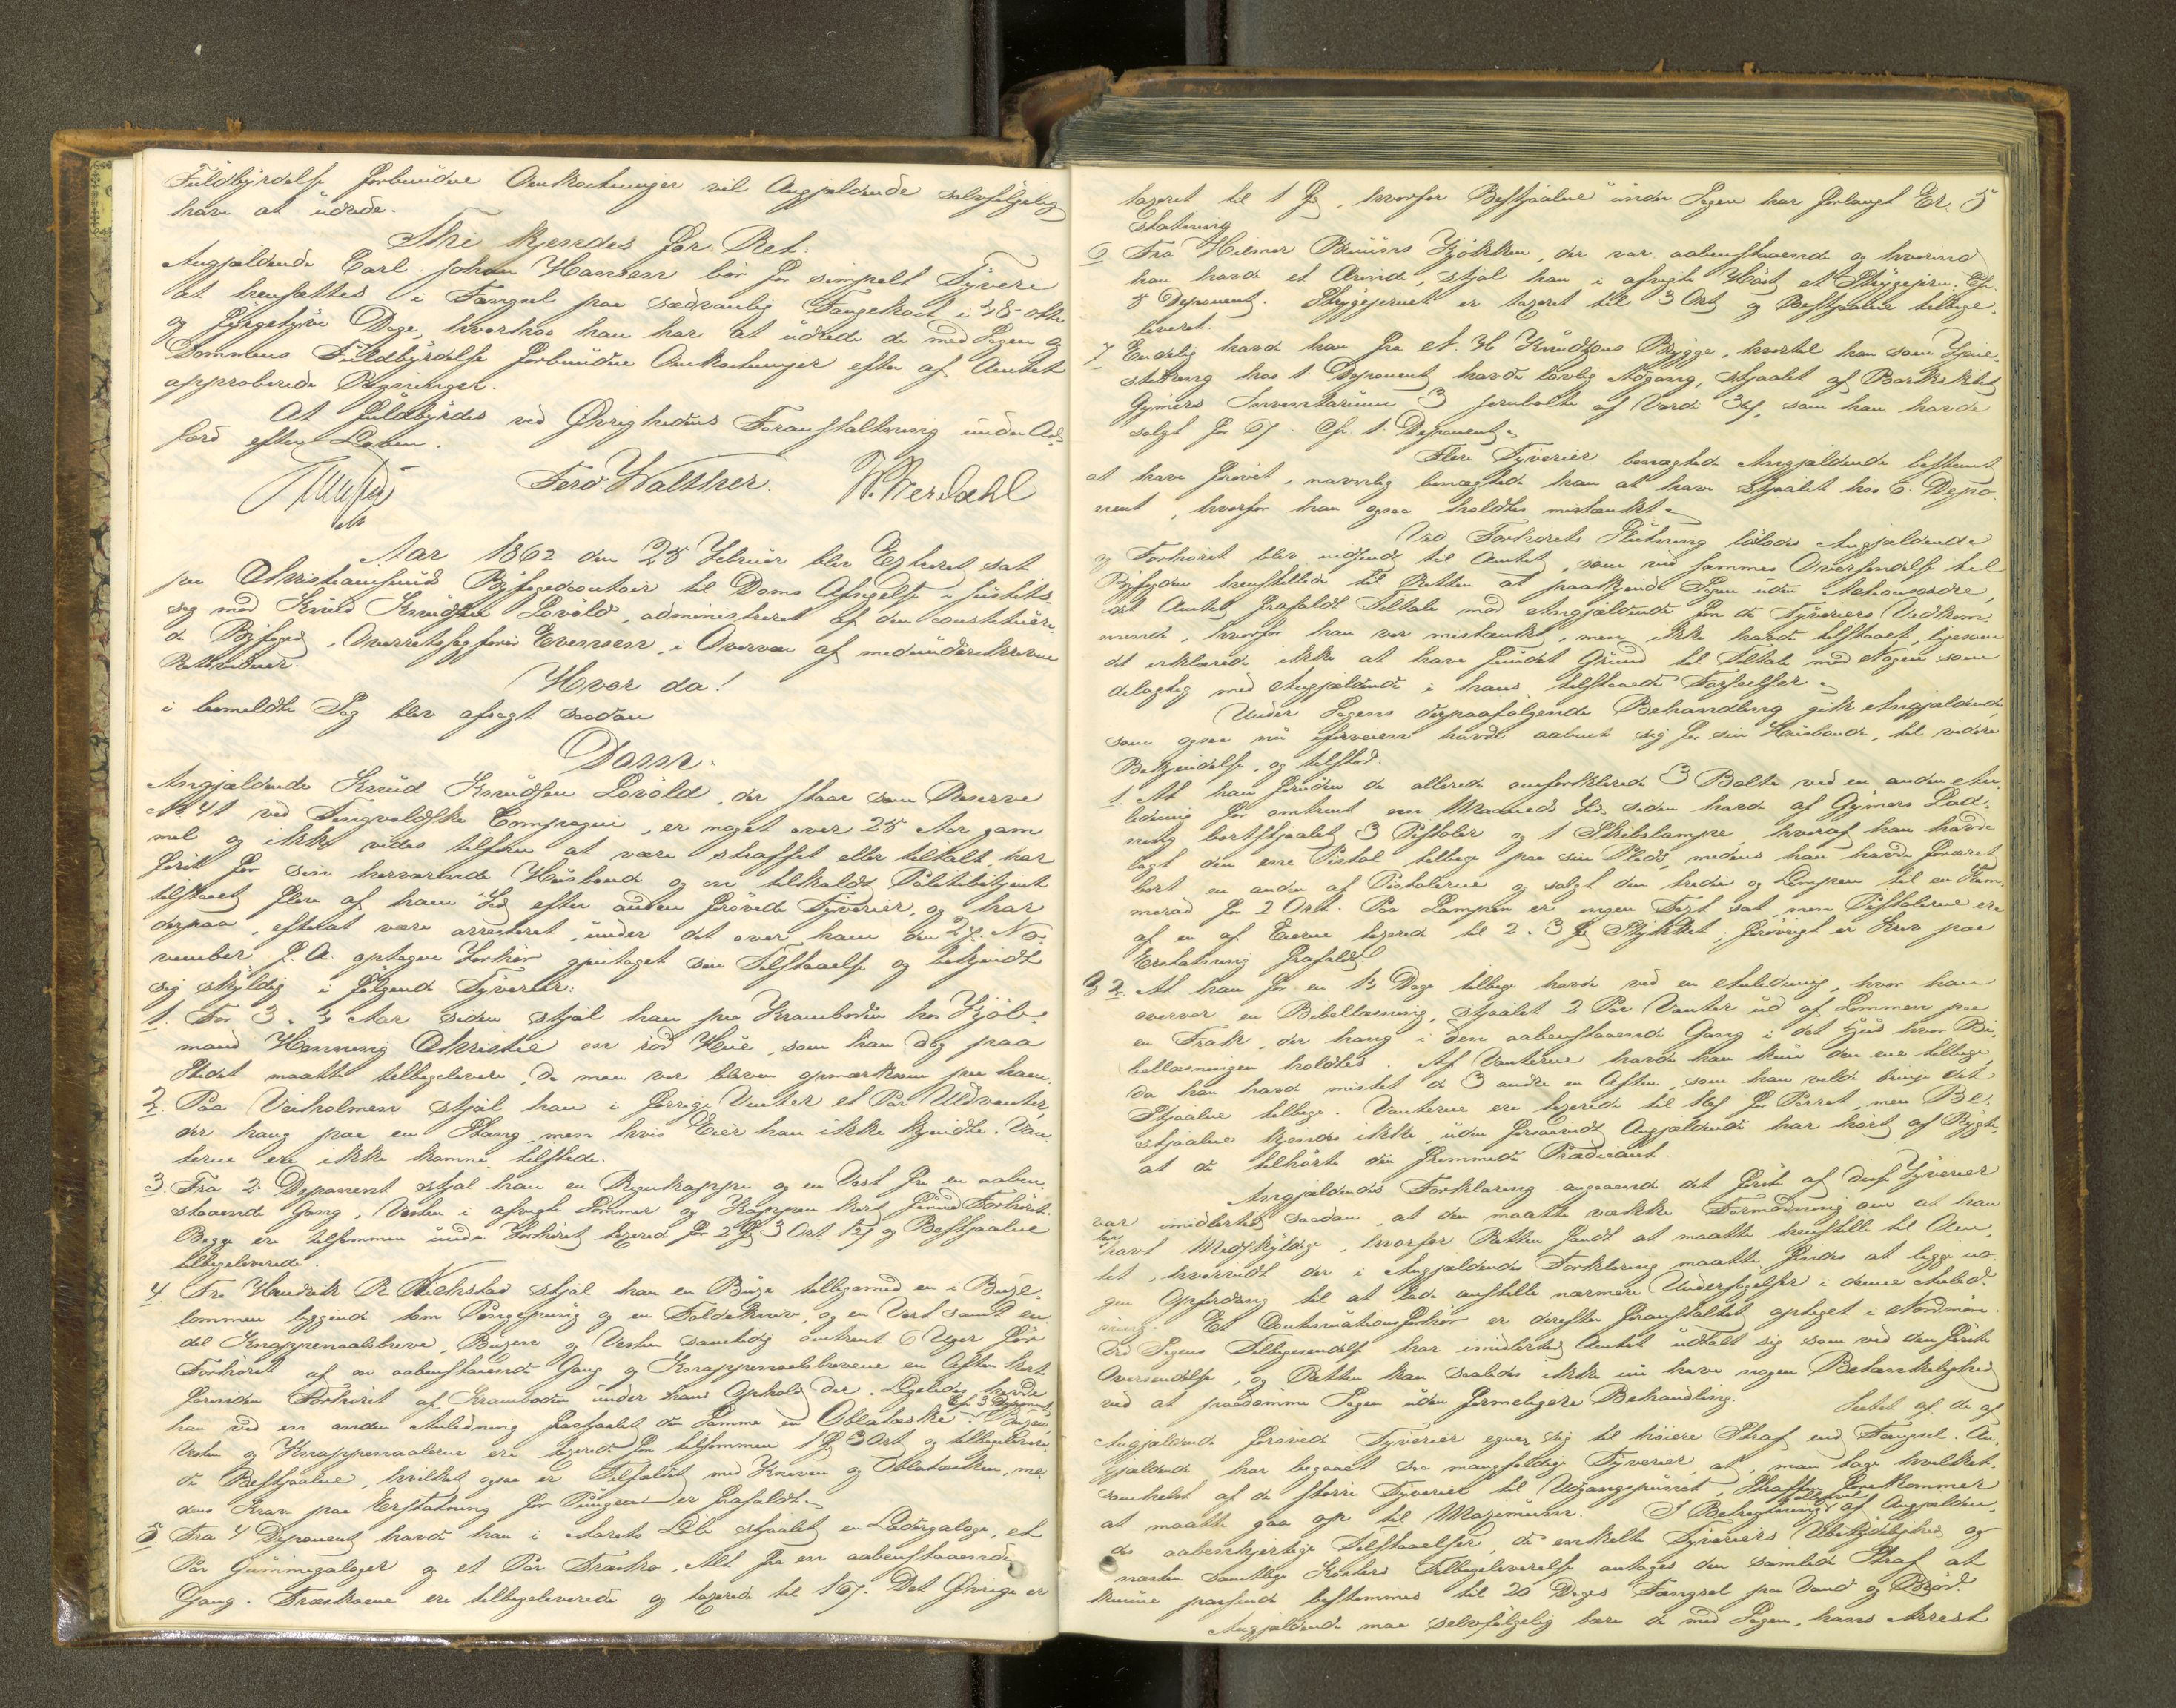 Fuldbyrdelse forbundne Omkostninger vil Angjældende selvfølgelig
have at udrede.
Thi kjendes for Ret:
Angjældende Carl Johan Hansen bør for simpelt Tyveri
at hensættes i Fængsel paa sædvanlig Fangekost i 48 otte
og fyrgetyve Dage, hvorhos han har at udrede de med Sagen og
Dommens Fuldbyrdelse forbundne Omkostninger efter af Amtet
approberede Regninger.
At fuldbyrdes ved Øvrighedens Foranstaltning under Ad-
færd efter Loven.
Ferd Walther. W. Werdahl
Aar 1862 den 28 Februar blev Extraret sat
paa Christiansunds Byfogedcontoir til Doms Afsigelse i Justits-
sag mod Knud Knudsen Lovold, administreret af den constituere-
de Byfoged, Overretssagfører Evensen, i Overvær af medunderskrevne
Retsvidner.
Hvor da!
i bemeldte Sag blev afsagt saadan
Dom.
Angjældende Knud Knudsen Lovold, der staar som Reserve
No 41 ved Tingvoldske Compagni, er noget over 28 Aar gam-
mel og ikke vides tilforn at være straffet eller tiltalt, har
først for sin herværende Husbond og en tilkaldt Politibetjent
tilstaaet flere af ham Tid efter anden forøvede Tyverier, og har
derpaa, efterat være arresteret, under det over ham den 27. No-
vember f. A. optagne Forhør gjentaget sin Tilstaaelse og bekjendt
sig skyldig i følgende Tyverier:
1. For 3 Aar siden stjal han paa Kramboden hos Kjøb-
mand Henning Christie en rød Hue, som han dog paa
Stedet maatte tilbagelevere, da man var bleven opmærksom paa ham.
2. Paa Veiholmen stjal han i forrige Vinter et Par Uldvanter,
der hang paa en Stang, men hvis Eier han ikke kjendte. Van-
terne ere ikke komne tilstede.
3. Fra 2 Deponent stjal han en Regnkappe og en Vest fra en aaben-
staaende Gang, Vesten i afvigte Sommer og Kappen kort forinden Forhøret.
Begge ere tilsammen under Forhøret taxerede for 2 Spd 3 Ort 12 s og Bestjaalne
tilbageleverede.
4. Fra Hendrik R. stjal han en Buxe tilligemed en i Buxe-
lommen liggende tom Pengepung og en Foldekniv, og en Vest samt en
del Knappenaalsbreve, Buxen og Vesten samtidig omtrent 6 Uger før
Forhøret af en aabenstaaende Gang og Knappenaalsbrevene en Aften kort
forinden Forhøret af Kramboden under hans Ophold der. Ligeledes havde
han ved en anden Anledning frastjaalet den Samme en Oblatæske. Cfr. 3 Deponent. Buxen
Vesten og Knappenaalene ere taxerede for tilsammen 1 Spd 3 Ort og tilbageleve-
de Bestjaalne, hvilket ogsaa er Tilfældet med Kniven og Oblatæsken, me-
dens Krav paa Erstatning for Pungen er frafaldt.
5. Fra 4 Deponent havde han i Aarets Løb stjaalet en Lædergaloge, et
Par Gummigaloger og et Par Træsko, Alt fra en aabenstaaende
Gang. Træskoene ere tilbageleverede og taxerede til 16 s. Det Øvrige er
taxeret til 1 Spd, hvorfor Bestjaalne under Sagen har forlangt Er-
statning.
6 Fra Hilmer Bruuns Kjøkken, der var aabenstaaende og hvorind
han havde et Ærende, stjal han i afvigte Høst et Strygejern. Cfr.
5 Deponent. Strygejernet er taxeret til 3 Ort og Bestjaalne tilbage-
leveret.
7 Endelig havde han fra N. H. Knudtzons Brygge, hvortil han som Tjene-
stedreng hos 1. Deponent havde lovlig Adgang, stjaalet af Barkskibet
Gymers Inventarium 3 Jernbolte af Værdi, som han havde
solgt for Cfr. 1. Deponent.
Flere Tyverier benægtede Angjældende bestemt
at have forøvet, navnlig benægtede han at have stjaalet hos 6. Depo-
nent, hvorfor han ogsaa holdtes mistænkt.
Ved Forhørets Slutning løslodes Angjældende
og Forhøret blev indsendt til Amtet, som ved sammes Oversendelse til
Byfogden henstillede til Retten at paakjende Sagen uden Actionsordre,
idet Amtet frafaldt Tiltale mod Angjældende for de Tyveriers Vedkom-
mende, hvorfor han var mistænkt, men ikke havde tilstaaet, ligesom
det erklærede ikke at have fundet Grund til Tiltale mod Nogen som
delagtig med Angjældende i hans tilstaaede Forseelser.
Under Sagens derpaafølgende Behandling gik Angjældende,
som ogsaa nu iforveien havde aabnet sig for sin Huusbonde, til videre
Bekjendelse, og tilstod:
1. At han foruden de allerede omforklarede 3 Bolte ved en anden An-
ledning for omtrent en Maaneds Tid siden havde af Gymers Lad-
ning bortstjaalet 3 Pistoler og 1 Skibslampe, hvoraf han havde
lagt den ene Pistol tilbage paa sin Plads, medens han havde foræret
bort en anden af Pistolerne og solgt den tredie og Lampen til en Kam-
merad for 2 Ort. Paa Lampen er ingen Taxt sat, men Pistolerne ere
af en af Eierne taxerede til 2 à 3 Spd Stykket; forøvrigt er Krav paa
Erstatning frafaldt.
2. At han for en 14 Dage tilbage havde ved en Anledning, hvor han
overvar en Bibellæsning, stjaalet 2 Par Vanter ud af Lommen paa
en Frak, der hang i den aabenstaaende Gang i det Huus hvor Bi-
bellæsningen holdtes. Af Vanterne havde han kun den ene tilbage,
da han havde mistet de 3 andre en Aften, som han vilde bringe det
Stjaalne tilbage. Vanterne ere taxerede til 16 s for Parret, men Be-
stjaalne kjendes ikke, uden forsaavidt Angjældende har hørt af Rygte,
at de tilhørte den fremmede Prædicant.
Angjældendes Forklaring angaaende det første af disse Tyverier
var imidlertid saadan, at den maatte vække Formodning om at han
havt Medskyldige, hvorfor Retten fandt at maatte henstille til Am-
tet, hvorvidt der i Angjældendes Forklaring maatte findes at ligge no-
gen Opfordring til at lade anstille nærmere Undersøgelser i denne Anled-
ning. Et Continuationsforhør er derefter foranstaltet optaget i Nordmøre.
Ved Sagens Tilbagesendelse har imidlertid Amtet udtalt sig som ved den første
Oversendelse, og Retten kan saaledes ikke nu have nogen Betænkelighed
ved at paadømme Sagen uden formeligere Behandling.
Intet af de af
Angjældende forøvede Tyverier egner sig til høiere Straf end Fængsel. An-
gjældende har begaaet saa mangfoldige Tyverier, at, man tage hvilket-
somhelst af de større Tyverier til Udgangspunct, Straffen forekommer
at maatte gaa op til Maximum. I Betragtning af Angjælden-
des aabenhjertige Tilstaaelser, de enkelte Tyveriers Ubetydelighed og
næsten samtlige Kosters Tilbageleverelse antages den samlede Straf at
kunne passende bestemmes til 20 Dages Fængsel paa Vand og Brød.
Angjældende maa selvfølgelig bære de med Sagen, hans Arrest